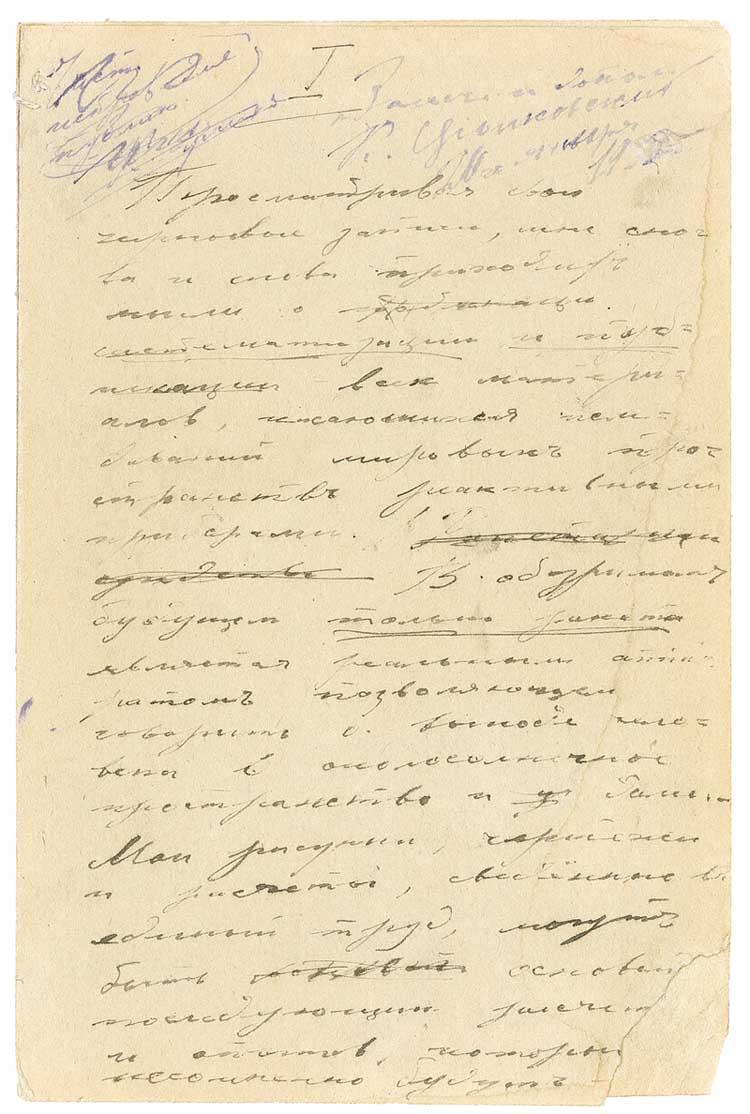 I
К. Циолковский
Просматривая свои
черновые записи, мне сно-
ва и снова приходятъ
мысли о
систематизации и пуб-
ликации всех матери-
алов, касающихся
мировыхъ про-
странствъ реактивными
приборами.
В обозримомъ
будущем только ракета
является реальным аппа-
ратомъ позволяющем
говорить о выходе чело-
века в околосолнечное
пространство и далее.
Мои рисунки, чертежи
и расчеты, сведённые в
единый труд, могутъ
быть основой
последующим расчет
и опытов, которы
несомненно будутъ